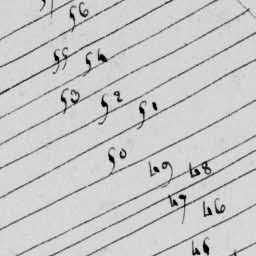 56
55 54
53 52 51
50
49 48
47 46
45